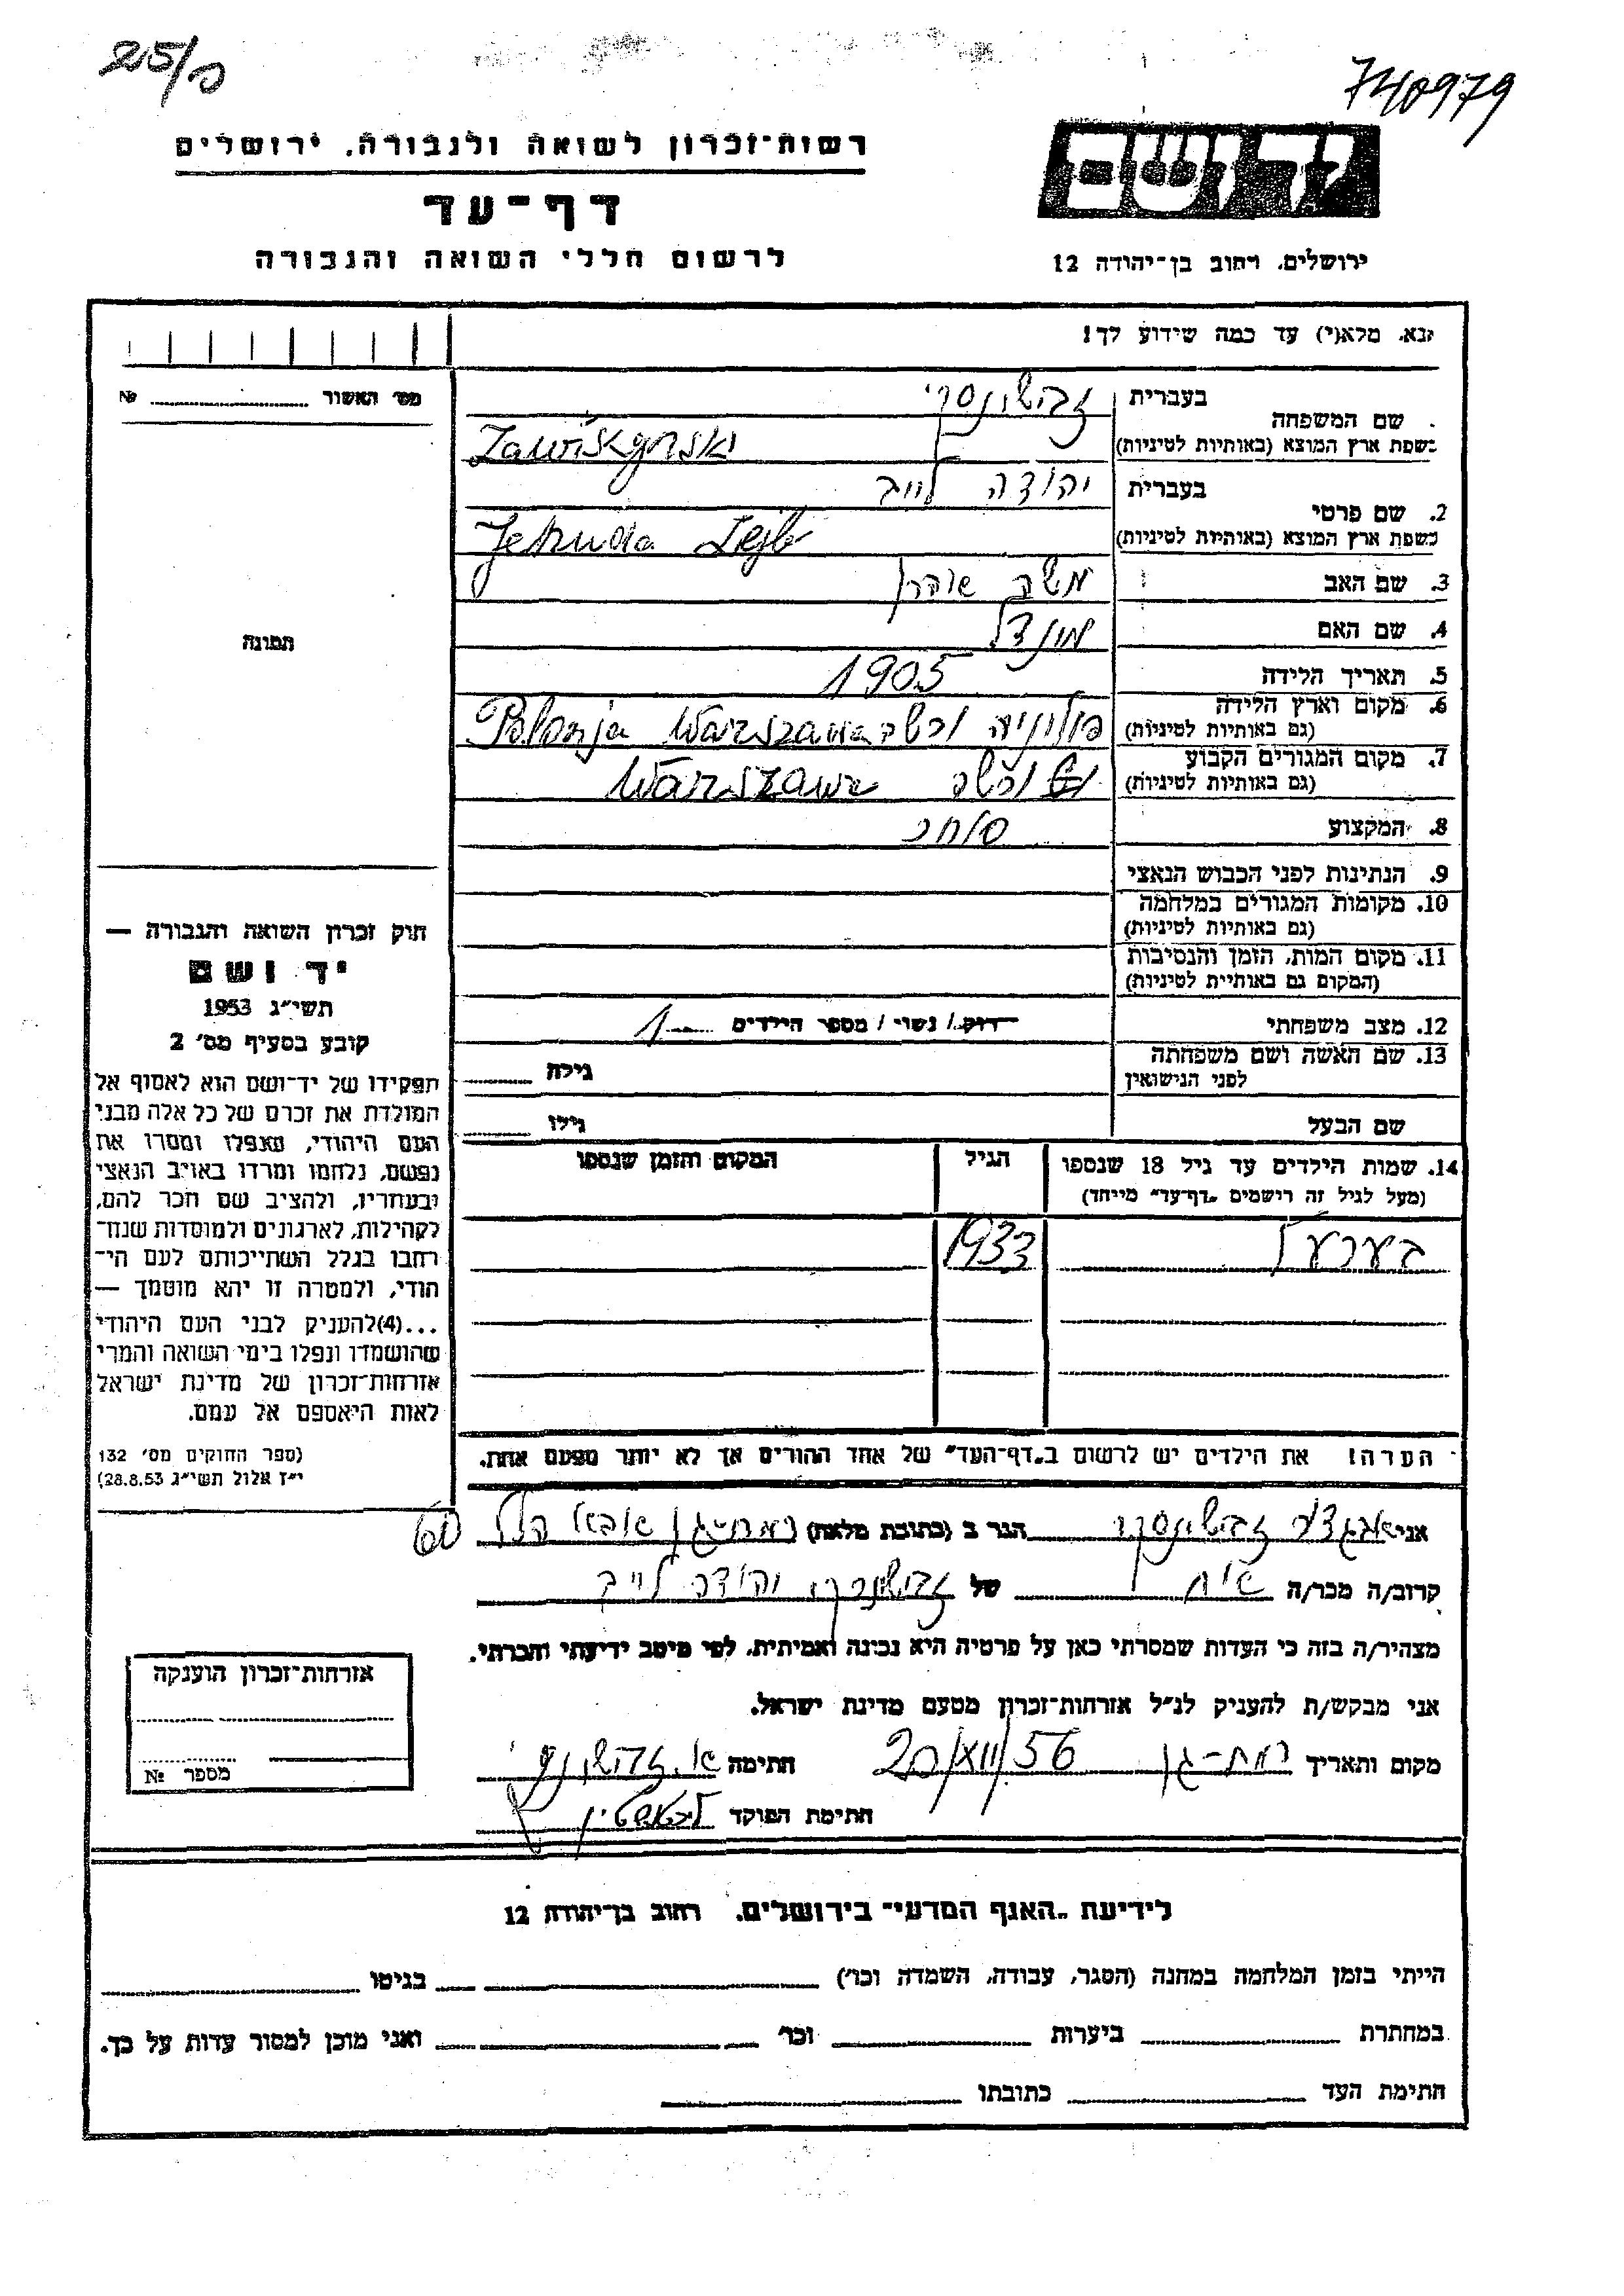 25/ס
740979
רשות-זכרון לשואה ולגבורה, ירושלים
יד ושם
דף-עד
לרשום חללי השואה והגבורה
ירושלים, רחוב בן-יהודה 12
נא, מלא(י) עד כמה שידוע לך!
מס׳ האשור № 
בעברית
שם המשפחה
בשפת ארץ המוצא (באותיות לטיניות)
יהודה לייב
בעברית
2. שם פרטי
Jehuda Lejb
בשפת ארץ המוצא (באותיות לטיניות)
3. שם האב משה אהרן
4. שם האם מינדל
תמונה
5. תאריך הלידה 1905
6. מקום וארץ הלידה
(גם באותיות לטיניות) פולוניה ורשה Warszawa Polonja
7. מקום המגורים הקבוע
(גם באותיות לטיניות) ורשה Warszawa
8. המקצוע סוחר
9. הנתינות לפני הכבוש הנאצי
10. מקומות המגורים במלחמה
(גם באותיות לטיניות)
11. מקום המות, הזמן והנסיבות
(המקום גם באותיות לטיניות)
12. מצב משפחתי רווק / נשוי / מספר הילדים 1
13. שם האשה ושם משפחתה
לפני הנישואין גילה
שם הבעל גילו
14. שמות הילדים עד גיל 18 שנספו הגיל המקום והזמן שנספו
(מעל לגיל זה רישמים "דף-עד" מייחד)
בערעל 1933
הערה! את הילדים יש לרשום ב"דף-העד" של אחד ההורים אך לא יותר מפעם אחת.
חוק זכרון השואה והגבורה —
יד ושם
תשי"ג 1953
קובע בסעיף מס׳ 2
תפקידו של יד-ושם הוא לאסוף אל
המולדת את זכרם של כל אלה מבני
העם היהודי, שנפלו ומסרו את
נפשם, נלחמו ומרדו באויב הנאצי
ובעוזריו, ולהציב שם וזכר להם,
לקהילות, לארגונים ולמוסדות שנח-
רבו בגלל השתייכותם לעם הי-
הודי, ולמטרה זו יהא מוסמך —
...(4)להעניק לבני העם היהודי
שהושמדו ונפלו בימי השואה והמרי
אזרחות-זכרון של מדינת ישראל
לאות היאספם אל עמם.
(ספר החוקים מס׳ 132
י"ז אלול תשי"ג 28.8.53)
אני הגר ב (כתובת מלאה) רמת-גן אבא הלל 60
קרוב/ה מכר/ה אח של יהודה לייב
מצהיר/ה בזה כי העדות שמסרתי כאן על פרטיה היא נכונה ואמיתית, לפי מיטב ידיעתי והכרתי.
אני מבקש/ת להעניק לנ"ל אזרחות-זכרון מטעם מדינת ישראל.
מקום ותאריך רמת-גן 56 חתימה
חתימת הפוקד
אזרחות-זכרון הוענקה
מספר №
לידיעת "האגף המדעי" בירושלים, רחוב בן-יהודה 12
הייתי בזמן המלחמה במחנה (הסגר, עבודה, השמדה וכו׳) בגיטו
במחתרת ביערות וכו׳ ואני מוכן למסור עדות על כך.
חתימת העד כתובתו